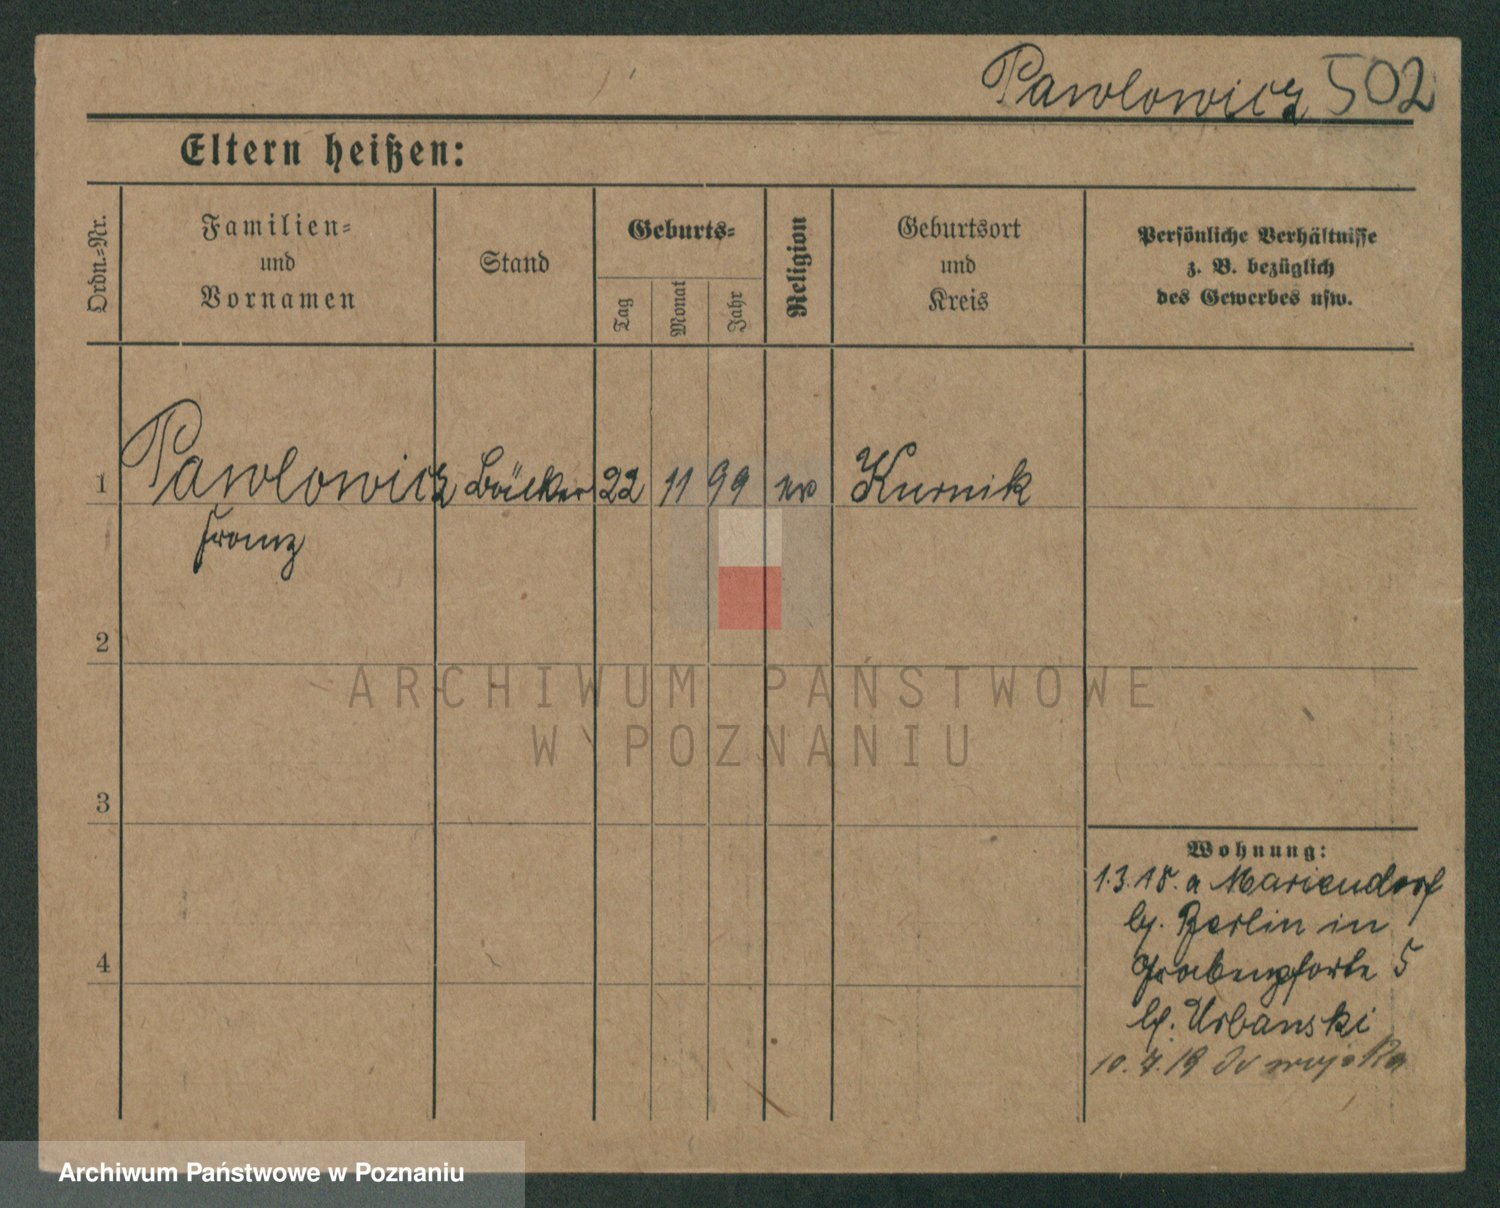 Pawlowicz 502
Eltern heißen:
Ordn.-Nr.
Familien-
und
Vornamen
Stand
Geburts-
Tag
Monat
Jahr
Religion
Geburtsort
und
Kreis
Persönliche Verhältnisse
z. B. bezüglich
des Gewerbes usw.
1 Pawlowicz Bäcker 22 11 99 Kurnik
Franz
2
3
4
Wohnung:
1.3.18. a Mariendorf
b/. Berlin in
Grabenpforte 5
b/. Urbanski
10.7.19 do wojska
ARCHIWUM PAŃSTWOWE
W POZNANIU
Archiwum Państwowe w Poznaniu